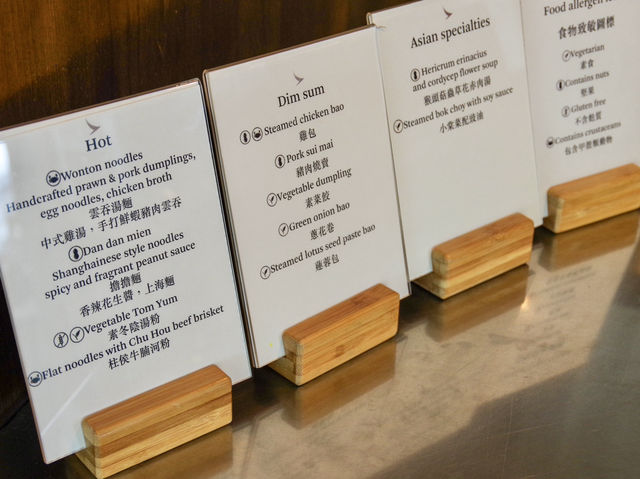 Hot
Wonton noodles
Handcrafted prawn & pork dumplings,
egg noodles, chicken broth
雲吞湯麵
中式雞湯，手打鮮蝦豬肉雲吞
Dan dan mien
Shanghainese style noodles
spicy and fragrant peanut sauce
擔擔麵
香辣花生醬，上海麵
Vegetable Tom Yum
素冬陰湯粉
Flat noodles with Chu Hou beef brisket
柱侯牛腩河粉
Dim sum
Steamed chicken bao
雞包
Pork sui mai
豬肉燒賣
Vegetable dumpling
素菜餃
Green onion bao
蔥花卷
Steamed lotus seed paste bao
蓮蓉包
Asian specialties
Hericrum erinacius
and cordycep flower soup
猴頭菇蟲草花赤肉湯
Steamed bok choy with soy sauce
小棠菜配豉油
Food allergen
食物致敏圖標
Vegetarian
素食
Contains nuts
堅果
Gluten free
不含麩質
Contains crustaceans
包含甲殼類動物